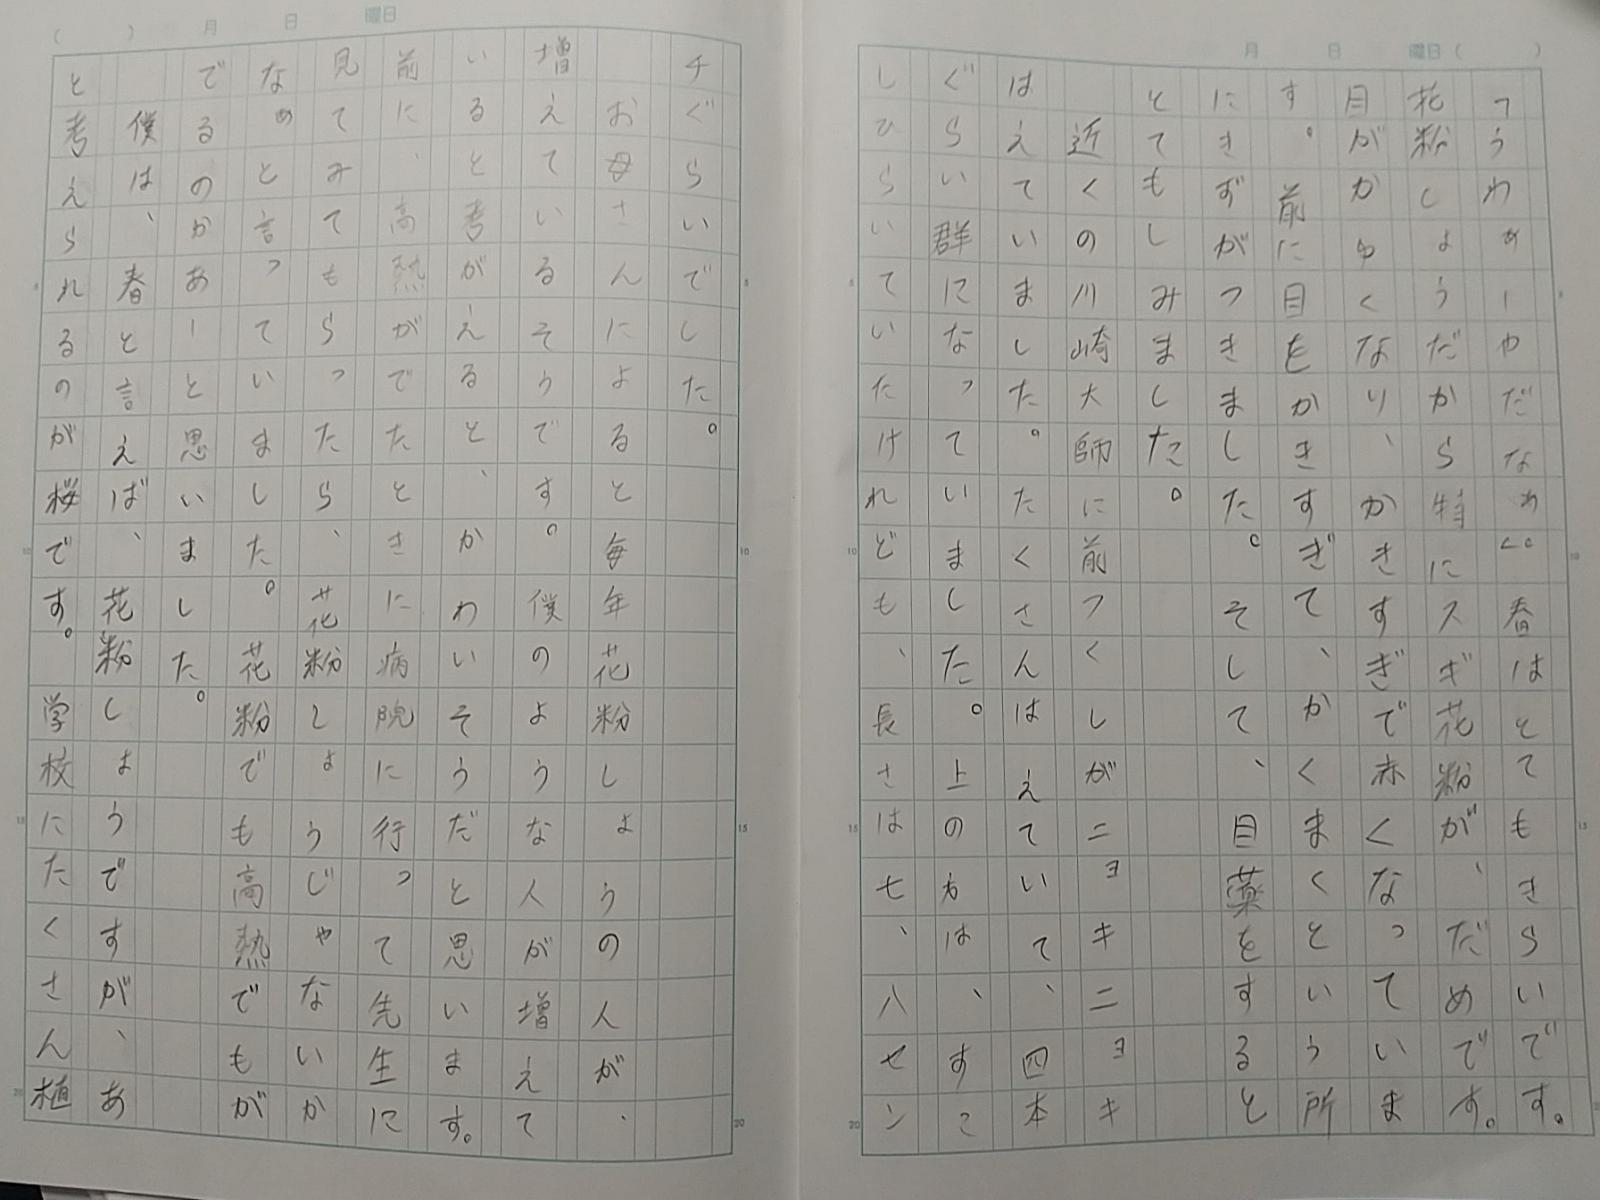 月　日　曜日（　）
「うわぁーやだなぁ」。春はとてもきらいです。
花粉しょうだから特にスギ花粉が、だめです。
目がかゆくなり、かきすぎで赤くなっていま
す。前に目をかきすぎて、かくまくという所
にきずがつきました。そして、目薬をすると
とてもしみました。
近くの川崎大師に前つくしがニョキニョキ
はえていました。たくさんはえていて、四本
ぐらい群になっていました。上の方は、すこ
しひらいていたけれども、長さは七、八セン
（　）月　日　曜日
チぐらいでした。
お母さんによると毎年花粉しょうの人が、
増えているそうです。僕のような人が増えて
いると考がえると、かわいそうだと思います。
前に、高熱がでたときに病院に行って先生に
見てみてもらったら、花粉しょうじゃないか
なぁとと言っていました。花粉でも高熱でもが
でるのかあーと思いました。
僕は、春と言えば、花粉しょうですが、あ
と考えられるのが桜です。学校にたくさん植